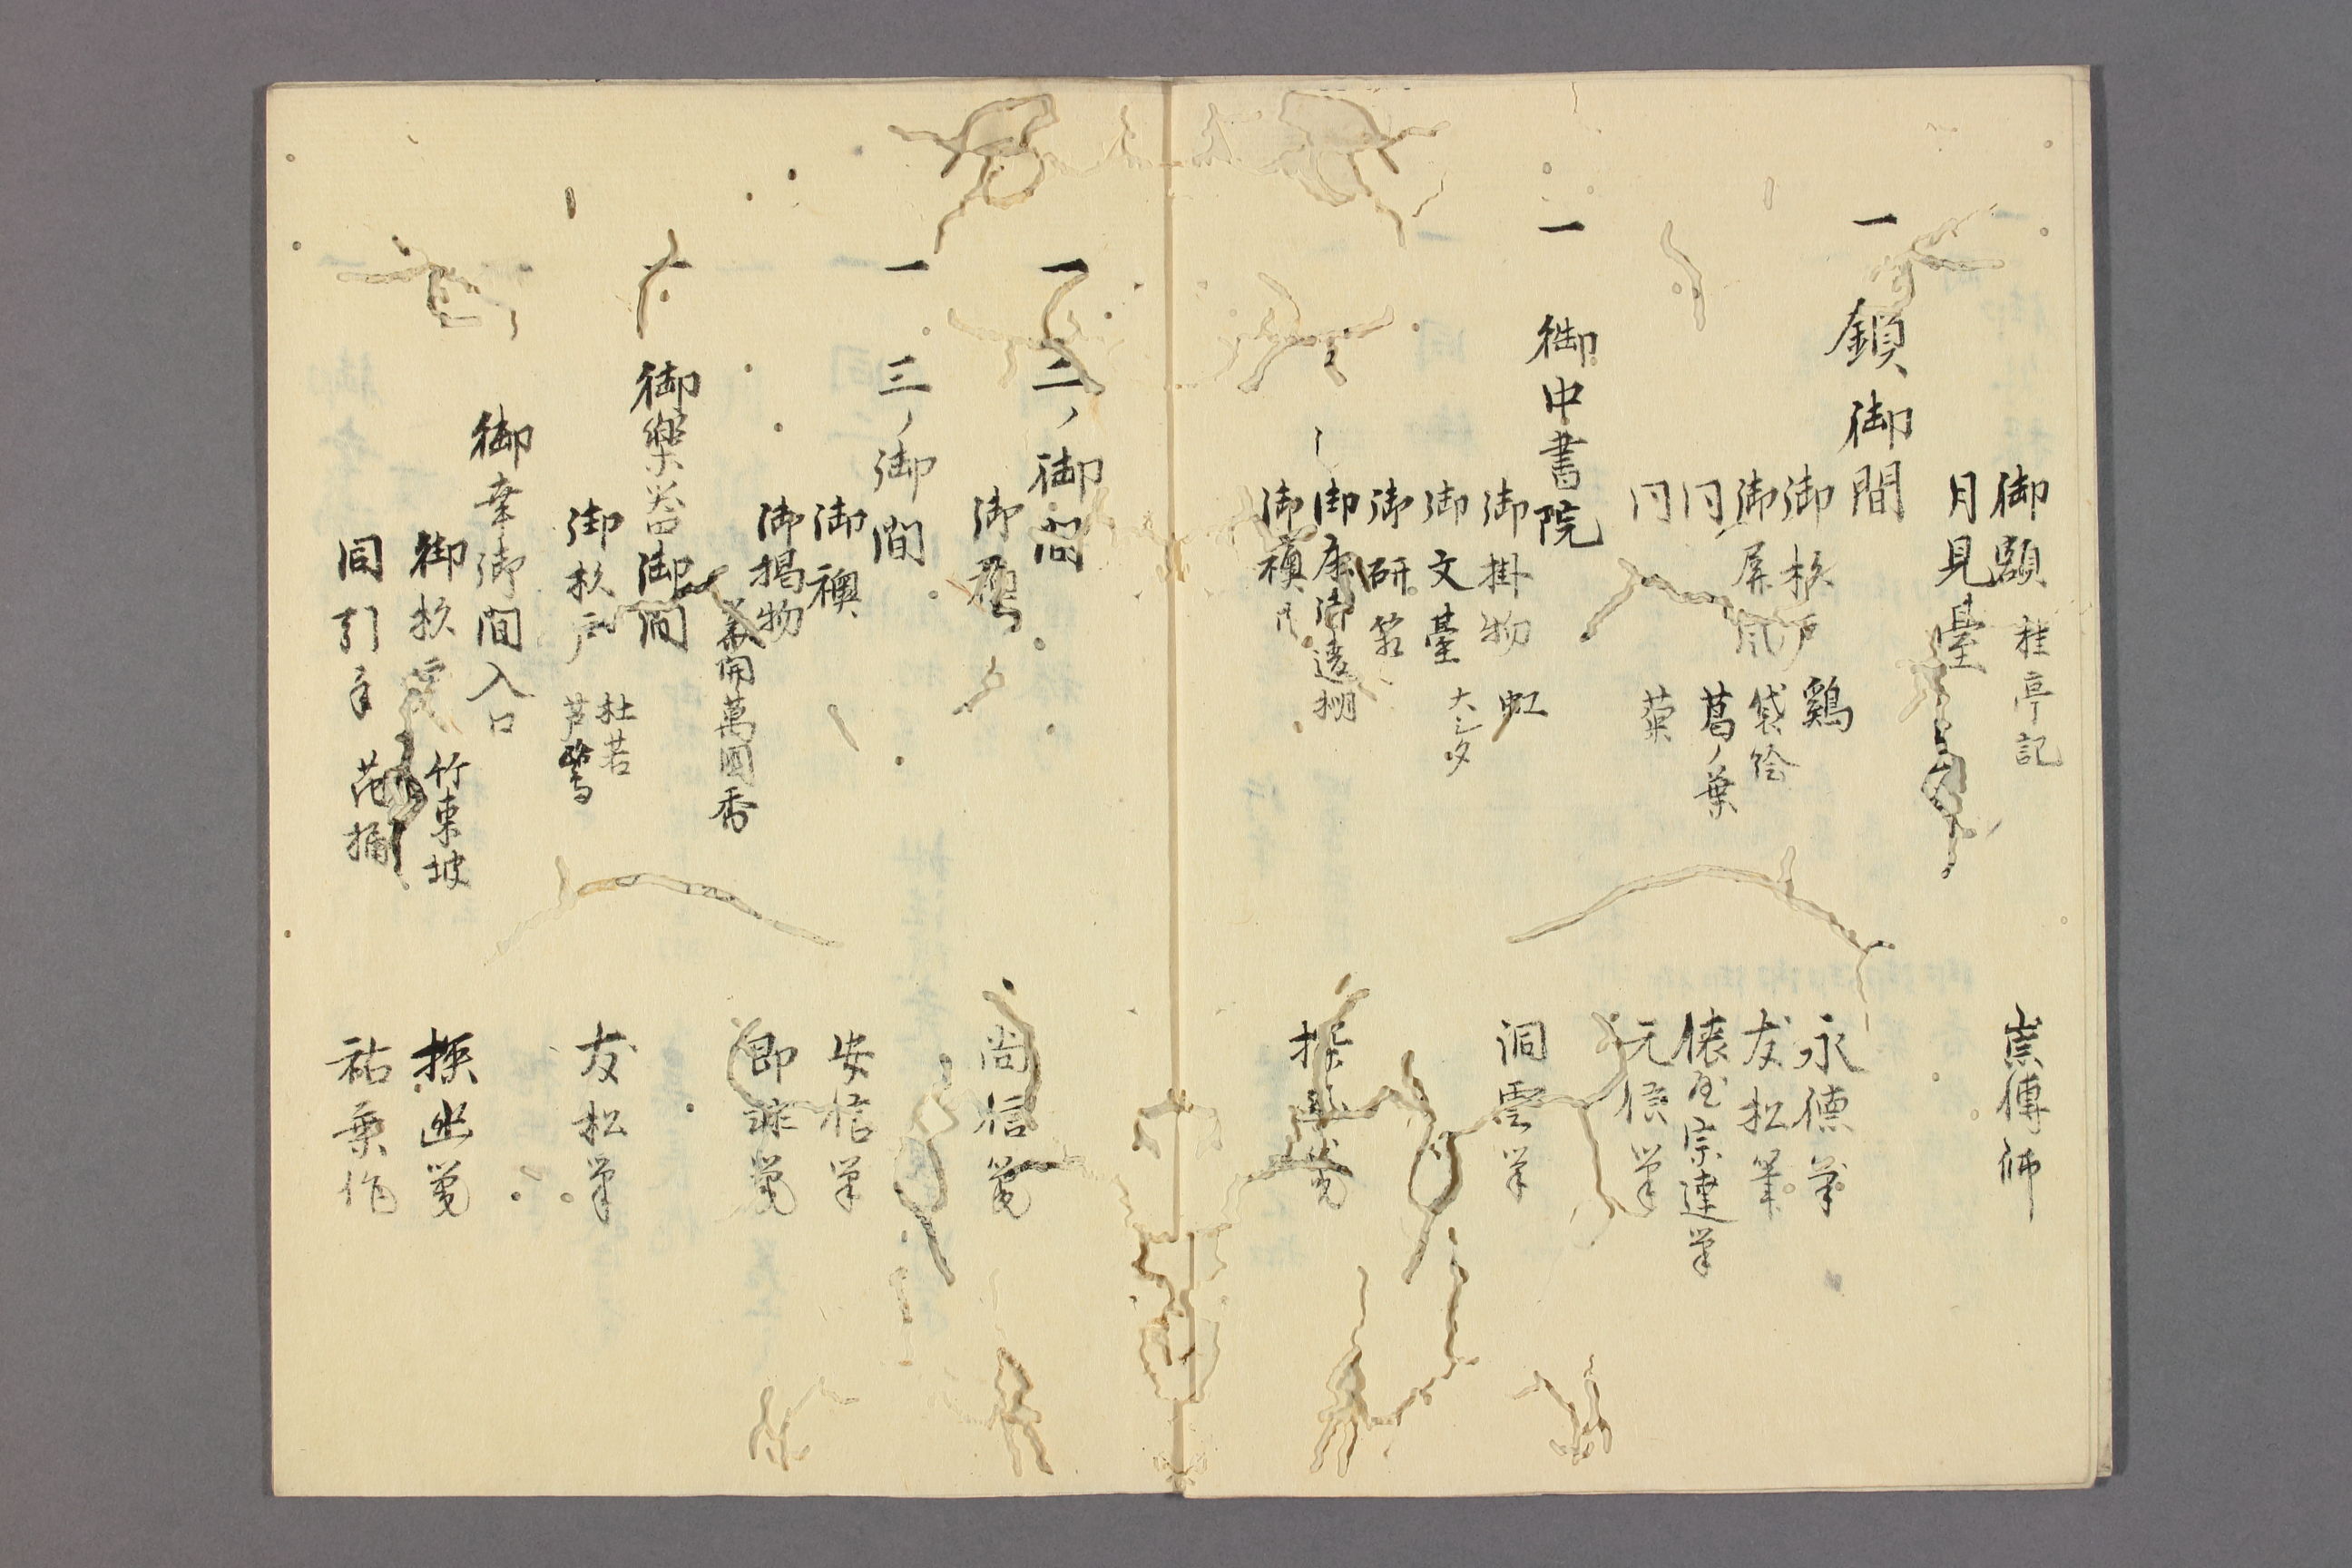 御額 桂亭記 崇傳師
月見臺
一 鎖御間
御杉戸 鷄 永徳筆
御屏風 袋絵 友松筆
同 葛ノ葉 俵屋宗達筆
同 菊 元信筆
一 御中書院
御掛物 虹 洞雲筆
御文臺
御研筥
御棚
御襖 探幽筆
一 二ノ御間
御襖 尚信筆
一 三ノ御間
御襖 安信筆
御掲物 花開萬國香 即非筆
一 御樂器御間
御杉戸 杜若 芦鷺 友松筆
御幸御間入口
御杉戸 竹東坡 探幽筆
同引手 花桶 祐乗作